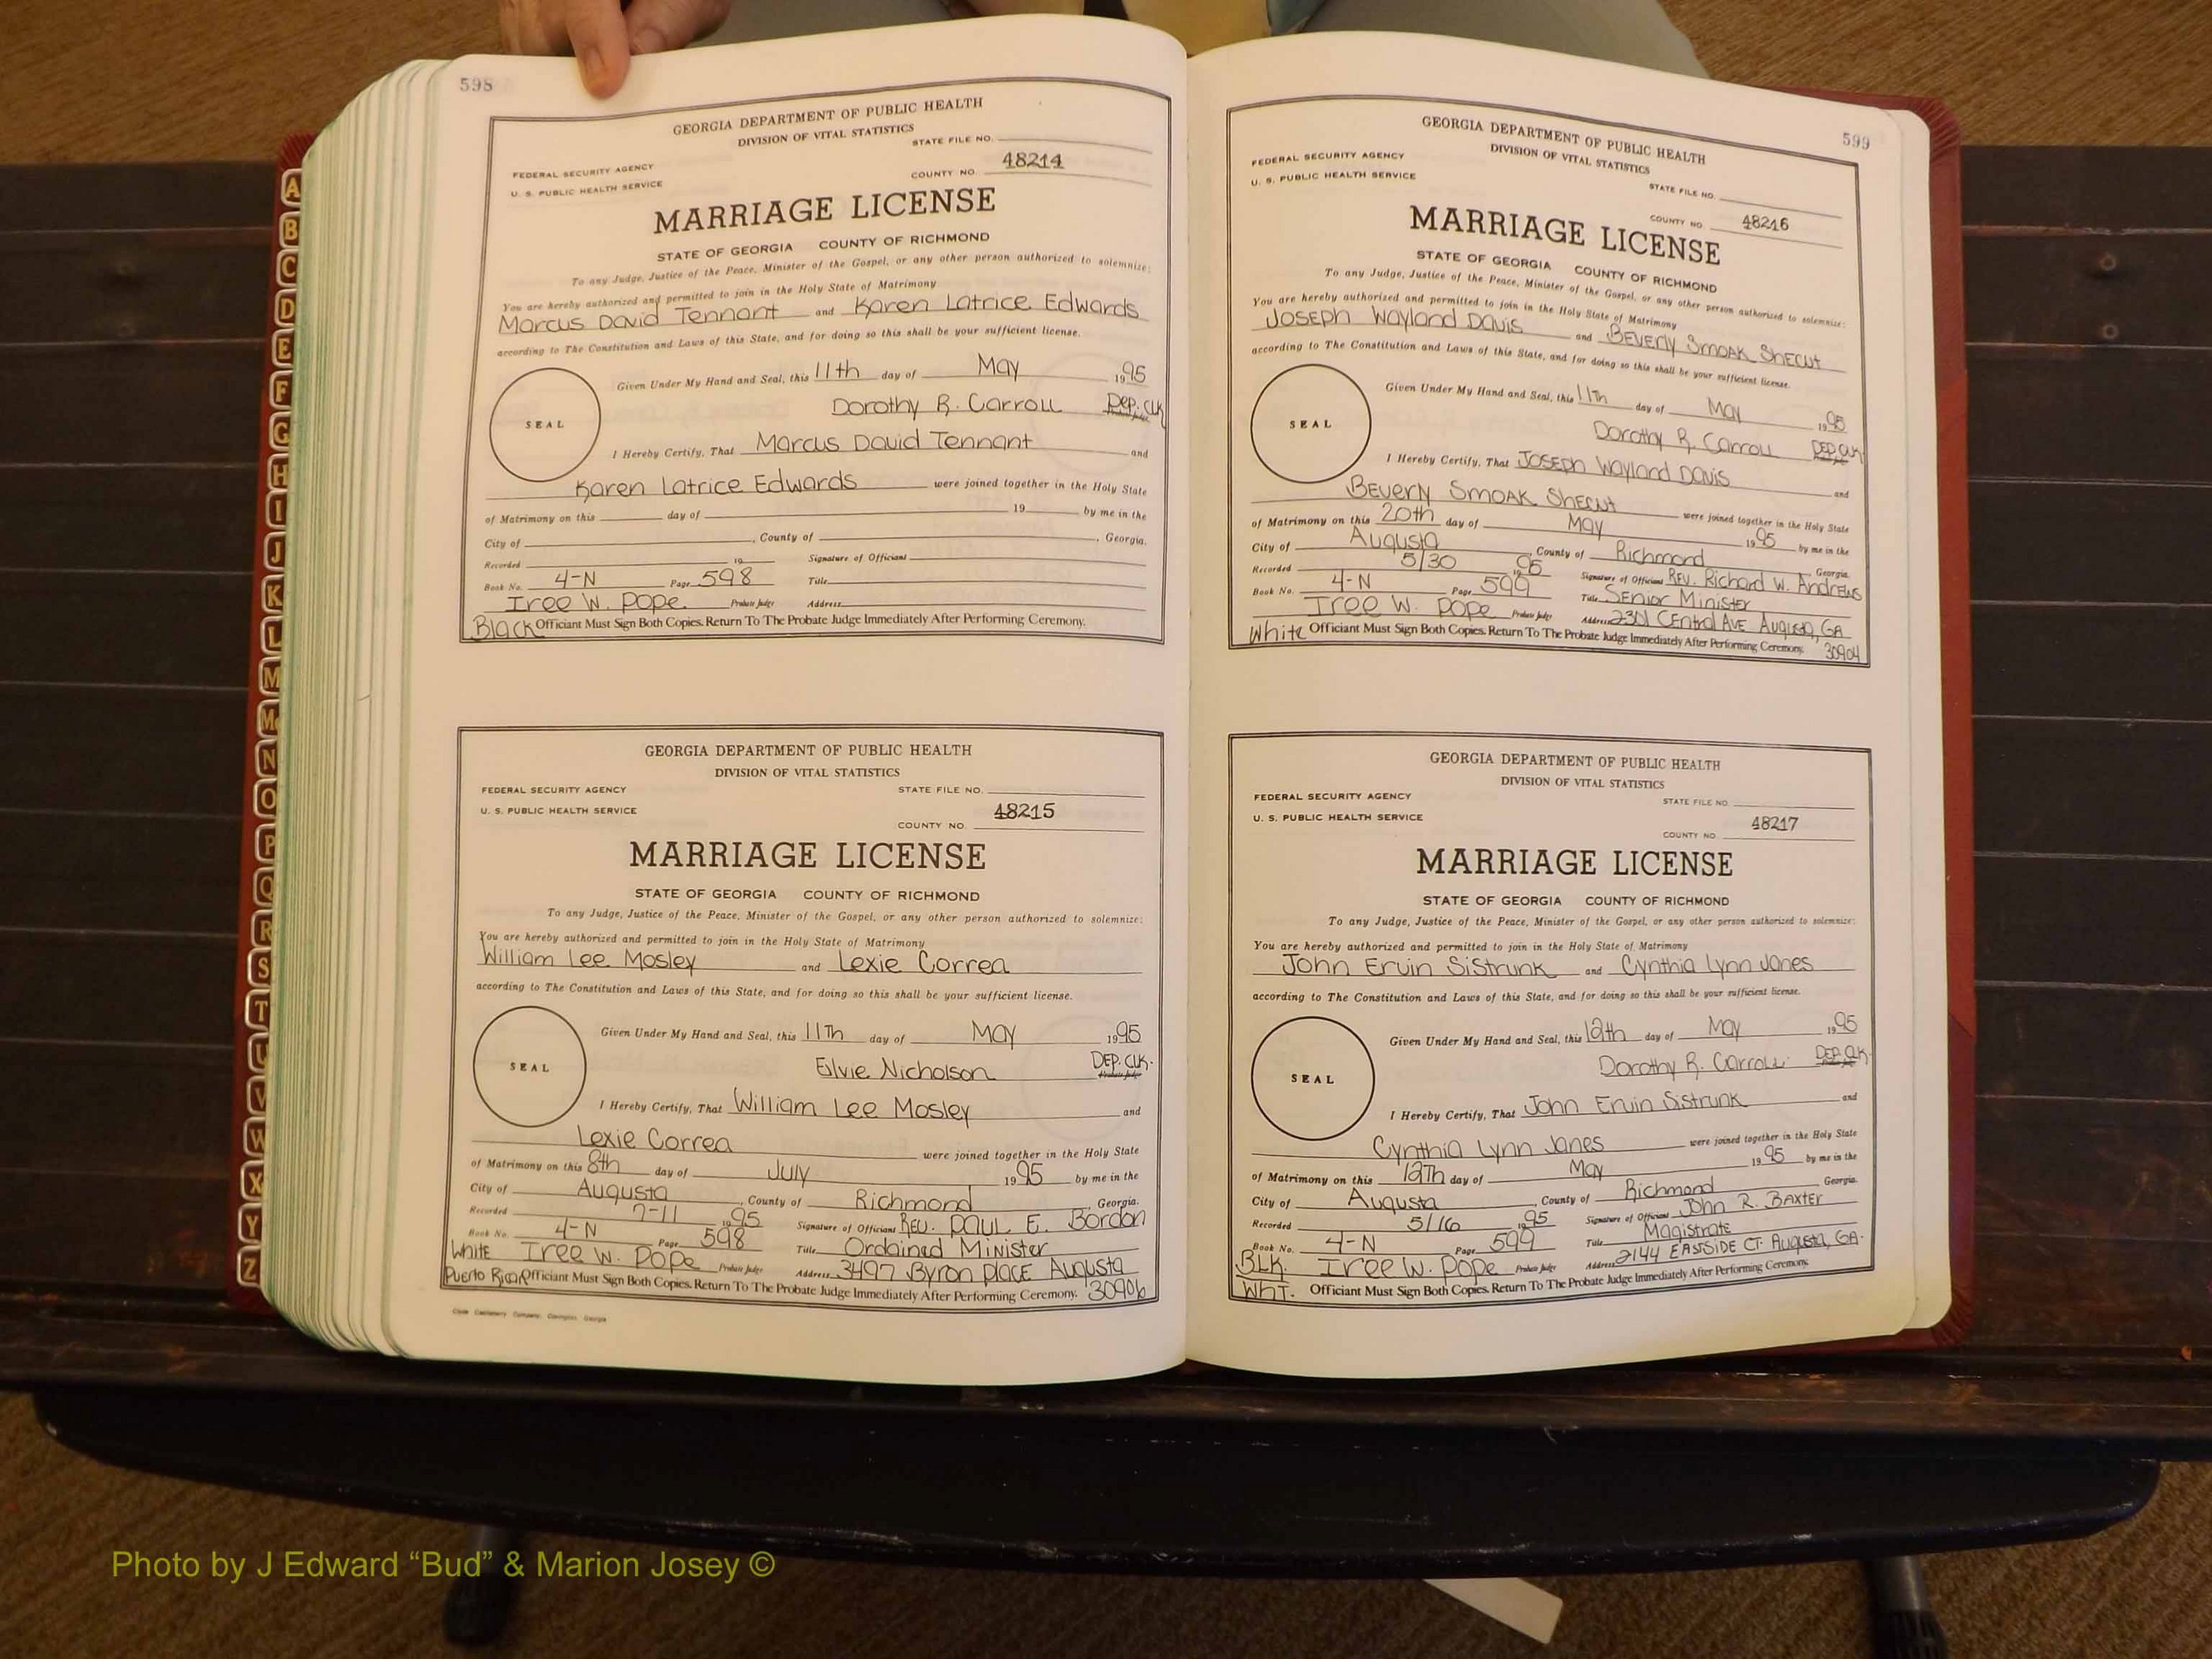 A
B
C
D
E
F
G
H
I
J
K
L
M
Mc
N
O
P
Q
R
S
T
U
V
W
X
Y
Z
598
GEORGIA DEPARTMENT OF PUBLIC HEALTH
DIVISION OF VITAL STATISTICS
STATE FILE NO.
FEDERAL SECURITY AGENCY
U. S. PUBLIC HEALTH SERVICE
COUNTY NO. 48214
MARRIAGE LICENSE
STATE OF GEORGIA COUNTY OF RICHMOND
To any Judge, Justice of the Peace, Minister of the Gospel, or any other person authorized to solemnize:
You are hereby authorized and permitted to join in the Holy State of Matrimony
Marcus David Tennant and Karen Latrice Edwards
according to The Constitution and Laws of this State, and for doing so this shall be your sufficient license.
SEAL
Given Under My Hand and Seal, this 11th day of May 1995
Dorothy R. Carroll Dep. Clk
Probate Judge
I Hereby Certify, That Marcus David Tennant and
Karen Latrice Edwards were joined together in the Holy State
of Matrimony on this day of 19 by me in the
City of , County of , Georgia.
Recorded 19 Signature of Officiant
Book No. 4-N Page 598 Title
Iree W. Pope Probate Judge Address
Black Officiant Must Sign Both Copies. Return To The Probate Judge Immediately After Performing Ceremony.
GEORGIA DEPARTMENT OF PUBLIC HEALTH
DIVISION OF VITAL STATISTICS
FEDERAL SECURITY AGENCY STATE FILE NO.
U. S. PUBLIC HEALTH SERVICE
COUNTY NO. 48215
MARRIAGE LICENSE
STATE OF GEORGIA COUNTY OF RICHMOND
To any Judge, Justice of the Peace, Minister of the Gospel, or any other person authorized to solemnize:
You are hereby authorized and permitted to join in the Holy State of Matrimony
William Lee Mosley and Lexie Correa
according to The Constitution and Laws of this State, and for doing so this shall be your sufficient license.
SEAL
Given Under My Hand and Seal, this 11Th day of MAY 1995
Elvie Nicholson DEP. CLK.
Probate Judge
I Hereby Certify, That William Lee Mosley and
Lexie Correa were joined together in the Holy State
of Matrimony on this 8th day of July 1995 by me in the
City of Augusta , County of Richmond , Georgia.
Recorded 7-11 1995 Signature of Officiant Rev. Paul E. Bordon
Book No. 4-N Page 598 Title Ordained Minister
White Iree W. Pope Probate Judge Address 3497 Byron Place Augusta
Puerto Rican Officiant Must Sign Both Copies. Return To The Probate Judge Immediately After Performing Ceremony. 30906
599
GEORGIA DEPARTMENT OF PUBLIC HEALTH
DIVISION OF VITAL STATISTICS
FEDERAL SECURITY AGENCY
U. S. PUBLIC HEALTH SERVICE
STATE FILE NO.
COUNTY NO. 48216
MARRIAGE LICENSE
STATE OF GEORGIA COUNTY OF RICHMOND
To any Judge, Justice of the Peace, Minister of the Gospel, or any other person authorized to solemnize:
You are hereby authorized and permitted to join in the Holy State of Matrimony
Joseph Wayland Davis and Beverly Smoak Shecut
according to The Constitution and Laws of this State, and for doing so this shall be your sufficient license.
SEAL
Given Under My Hand and Seal, this 11Th day of May 1995
Dorothy R. Carroll DEP Clk
I Hereby Certify, That Joseph Wayland Davis and
Beverly Smoak Shecut were joined together in the Holy State
of Matrimony on this 20th day of May 1995 by me in the
City of Augusta , County of Richmond , Georgia.
Recorded 5/30 1995 Signature of Officiant Rev. Richard W. Andrews
Book No. 4-N Page 599 Title Senior Minister
Iree W. Pope Probate Judge Address 2301 Central Ave Augusta, GA
White Officiant Must Sign Both Copies. Return To The Probate Judge Immediately After Performing Ceremony. 30904
GEORGIA DEPARTMENT OF PUBLIC HEALTH
DIVISION OF VITAL STATISTICS
FEDERAL SECURITY AGENCY STATE FILE NO.
U. S. PUBLIC HEALTH SERVICE
COUNTY NO 48217
MARRIAGE LICENSE
STATE OF GEORGIA COUNTY OF RICHMOND
To any Judge, Justice of the Peace, Minister of the Gospel, or any other person authorized to solemnize:
You are hereby authorized and permitted to join in the Holy State of Matrimony
John Ervin Sistrunk and Cynthia Lynn Janes
according to The Constitution and Laws of this State, and for doing so this shall be your sufficient license.
SEAL
Given Under My Hand and Seal, this 12th day of May 1995
Dorothy R. Carroll DEP. Clk.
I Hereby Certify, That John Ervin Sistrunk and
Cynthia Lynn Janes were joined together in the Holy State
of Matrimony on this 12Th day of May 1995 by me in the
City of Augusta , County of Richmond Georgia.
Recorded 5/16 1995 Signature of Officiant John R. Baxter
Book No. 4-N Page 599 Title Magistrate
BLK. Iree W. Pope Probate Judge Address 2144 EASTSIDE CT. Augusta, GA.
WHT. Officiant Must Sign Both Copies. Return To The Probate Judge Immediately After Performing Ceremony.
Photo by J Edward “Bud” & Marion Josey ©